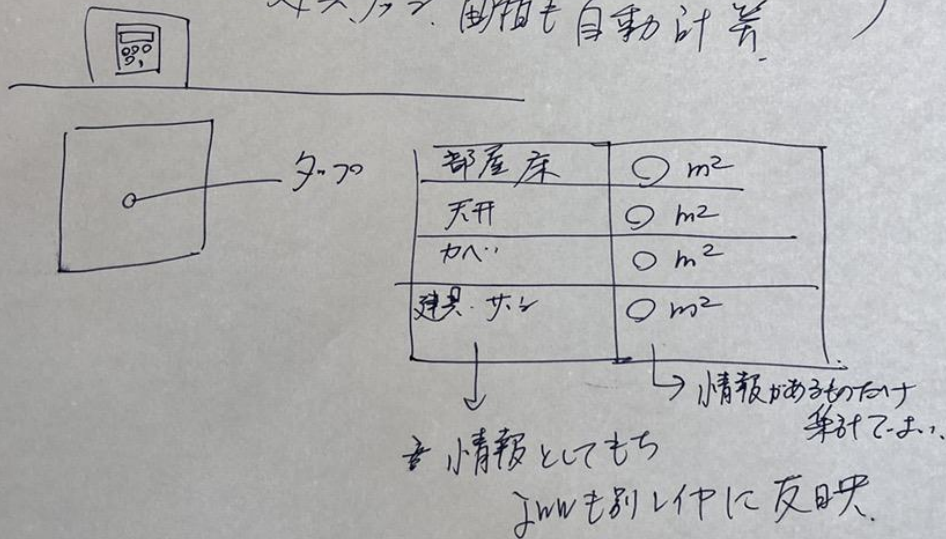 面積も自動計算
タップ
部屋 床 ○ m²
天井 ○ m²
カベ ○ m²
建具・サッシ ○ m²
情報があるものだけ
集計でよい。
情報としてもち
jwwも別レイヤに反映